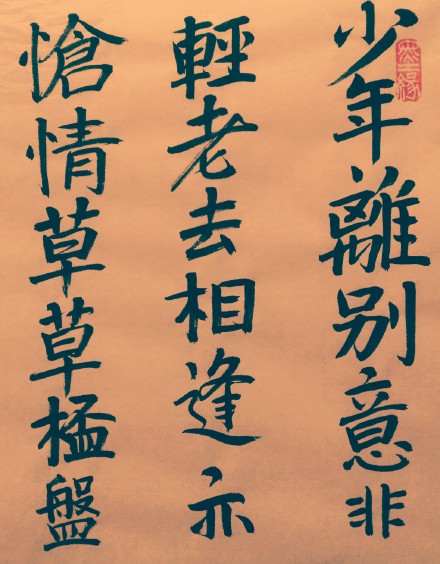 少年離別意非
輕老去相逢亦
愴情草草盤